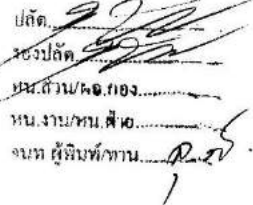 ปลัด
รองปลัด
หน.ส่วน/ผอ.กอง
หน.งาน/หน.ฝ่าย
จนท ผู้พิมพ์/ทาน